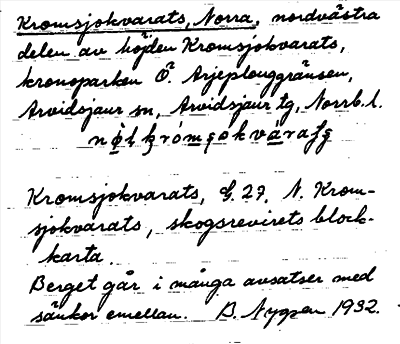 Kromsjokvarats, Norra, nordvästra
delen av höjden Kromsjokvarats,
kronoparken Ö. Arjeplouggränsen,
Arvidsjaur sn, Arvidsjaur tg, Norrb. l.
Kromsjokvarats, G. 27. N. Krom-
sjokvarats, skogsrevirets block-
karta.
Berget går i många avsatser med
sänkor emellan. B. Nygren 1932.